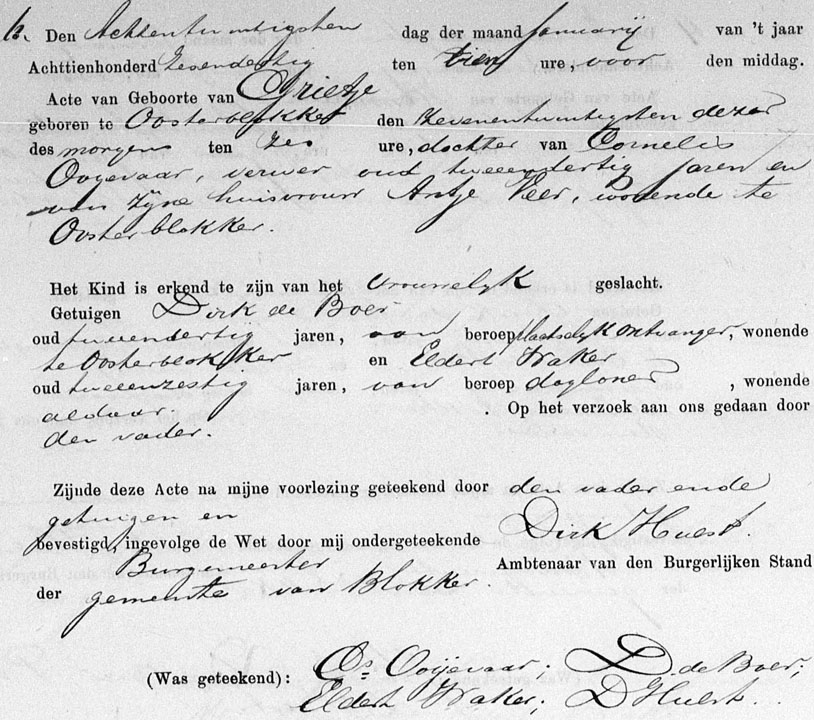 6. Den Achtentwintigsten dag der maand Januarij van 't jaar
Achttienhonderd Zesendertig ten tien ure, voor den middag.
Acte van Geboorte van Grietje
geboren te Oosterblokker den Zevenentwintigsten dezer
des morgens ten Zes ure, dochter van Cornelis
Ooyevaar, verwer oud tweeendertig jaren en
van Zijne huisvrouw Antje Veer, wonende te
Oosterblokker.
Het Kind is erkend te zijn van het vrouwelyk geslacht.
Getuigen Dirk de Boer
oud tweeendertig jaren, van beroep plaatselyk ontvanger, wonende
te Oosterblokker en Eldert Waker
oud tweeenzestig jaren, van beroep dagloner, wonende
aldaar. Op het verzoek aan ons gedaan door
den vader.
Zijnde deze Acte na mijne voorlezing geteekend door den vader en de
getuigen en
bevestigd, ingevolge de Wet door mij ondergeteekende Dirk Huest.
Burgemeester Ambtenaar van den Burgerlijken Stand
der gemeente van Blokker.
(Was geteekend): Cs Ooijevaar; D. de Boer;
Eldert Waker; D Huest.